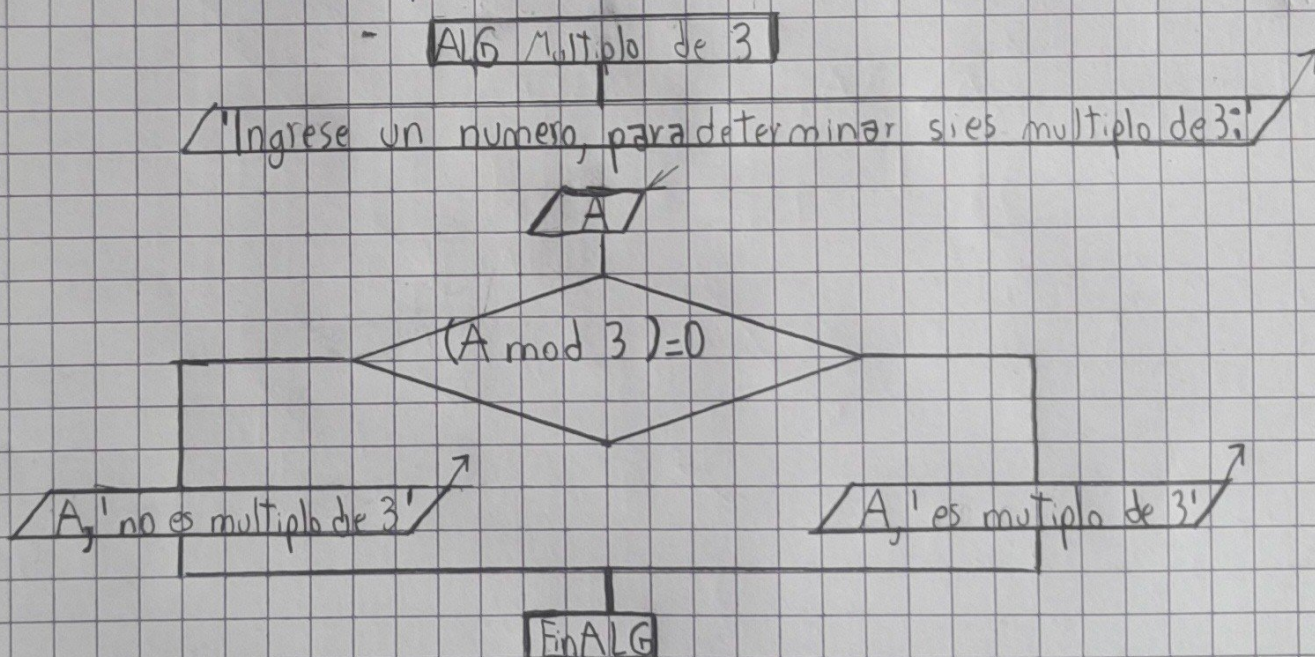 - ALG Multiplo de 3
'Ingrese un numero, para determinar si es multiplo de 3:'
A
(A mod 3)=0
A, 'no es multiplo de 3'
A, 'es mutiplo de 3'
FinALG